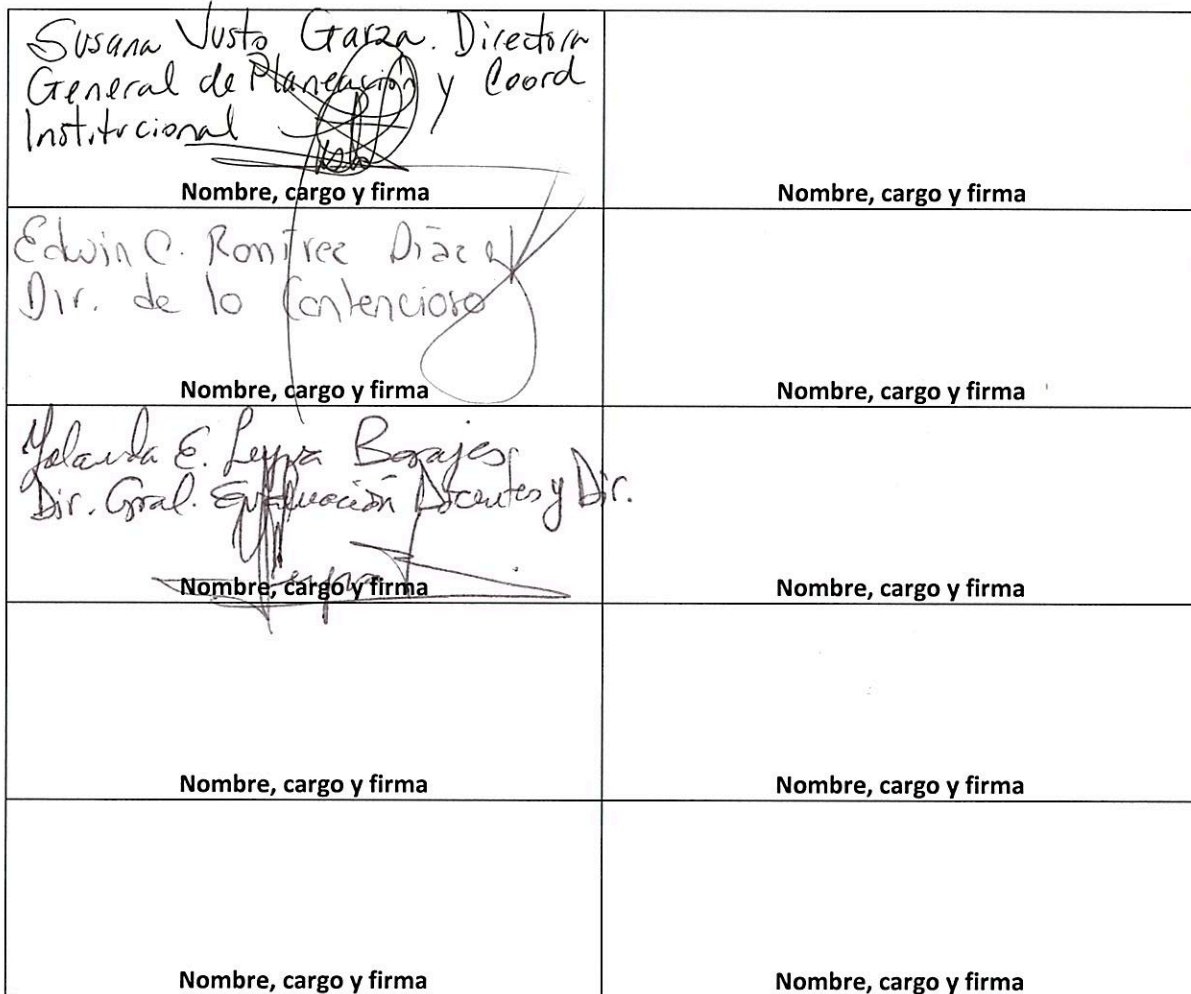 Susana Justo Garza. Directora
General de Planeación y Coord
Institucional
Nombre, cargo y firma
Nombre, cargo y firma
Edwin C. Ramírez Díaz
Dir. de lo Contencioso
Nombre, cargo y firma
Nombre, cargo y firma
Yolanda E. Leyva
Dir. Gral. Evaluación Docentes y Dir.
Nombre, cargo y firma
Nombre, cargo y firma
Nombre, cargo y firma
Nombre, cargo y firma
Nombre, cargo y firma
Nombre, cargo y firma